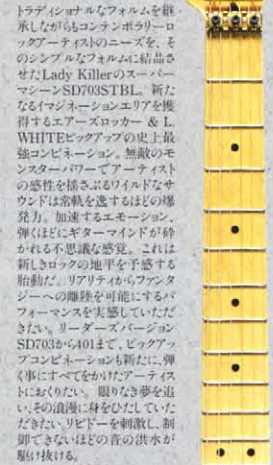 トラディショナルなフォルムを継
承しながらもコンテンポラリーロ
ックアーティストのニーズを、そ
のシンプルなフォルムに結晶さ
せたLady Killerのスーパー
マシーンSD703STBL。新た
なるイマジネーションエリアを獲
得するエアーズロッカー & L.
WHITEピックアップの史上最
強コンビネーション。無敵のモ
ンスターパワーでアーティスト
の感性を揺さぶるワイルドなサ
ウンドは常軌を逸するほどの爆
発力。加速するエモーション、
弾くほどにギターマインドが砕
かれる不思議な感覚。これは
新しきロックの地平を予感する
胎動だ。リアリティからファンタ
ジーへの離陸を可能にするパ
フォーマンスを実感していただ
きたい。リーダーズバージョン
SD703から401まで、ピックアッ
プコンビネーションも新たに、弾
く事にすべてをかけたアーティス
トにおくりたい。限りなき夢を追
い、その浪漫に身をひたしていた
だきたい。リビドーを刺激し、制
御できないほどの音の洪水が
駆け抜ける。